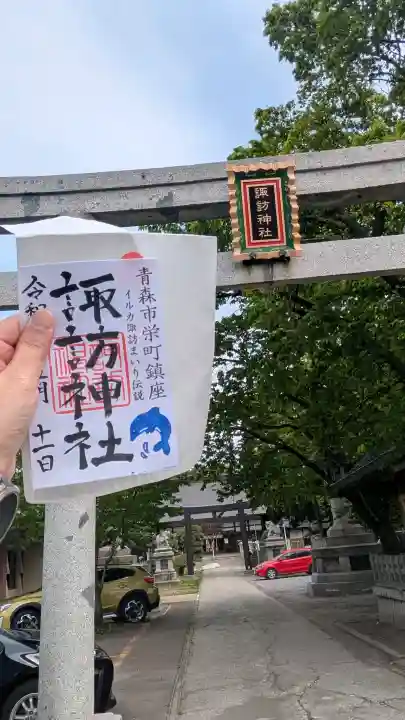 諏訪神社
青森市栄町鎮座
イルカ諏訪まいり伝説
諏訪神社
令和
月十一日